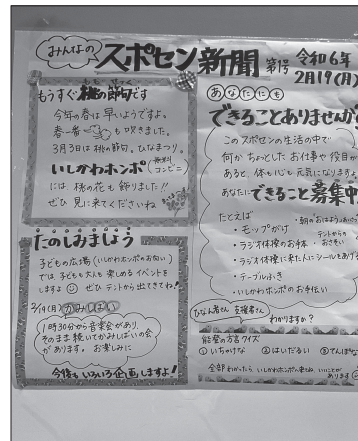 みんなの
スポセン新聞 第1号 令和6年
2月19(月)
もうすぐ桃の節句です
もも せっく
今年の春は早いようですよ。
春一番も吹きました。
3月3日は桃の節句。ひなまつり。
いしかわホンポ(無料コンビニ)
には 桃の花も飾りました!!
ぜひ 見に来てくださいね
たのしみましょう
子どもの広場(いしかわホンポのお向い)
では 子どもも大人も楽しめるイベントを
しますよ ぜひ テントから出てきてね!
2/19(月) かみしばい
1時30分から音楽会があり、
そのまま続いてかみしばいの会
があります。お楽しみに
今後もいろいろ企画しますよ!
あなたにも
できることありませんか
このスポセンの生活の中で
何か ちょっとした お仕事や 役目が
あると、体も心も元気になりますよ
あなたにできること募集中
たとえば
・モップがけ
・ラジオ体操のお手本
・ラジオ体操に来た人にシールをあげる
・テーブルふき
・いしかわホンポのお手伝い
・朝のおはよう
テントからの
おさそい
ひなん者さん 支援者さん
わかりますか?
能登の方言クイズ
① いちゃけな ② はいだるい ③ てんぽな
全部わかったら いしかわホンポへ来てね いいことが
あります